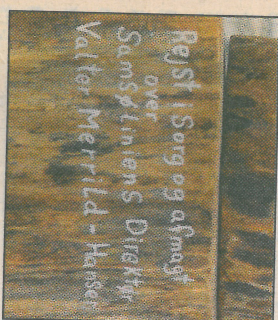 Rejst i Sorg og afmagt
over
Samsølinens Direktør
Valter Merrild-Hansen